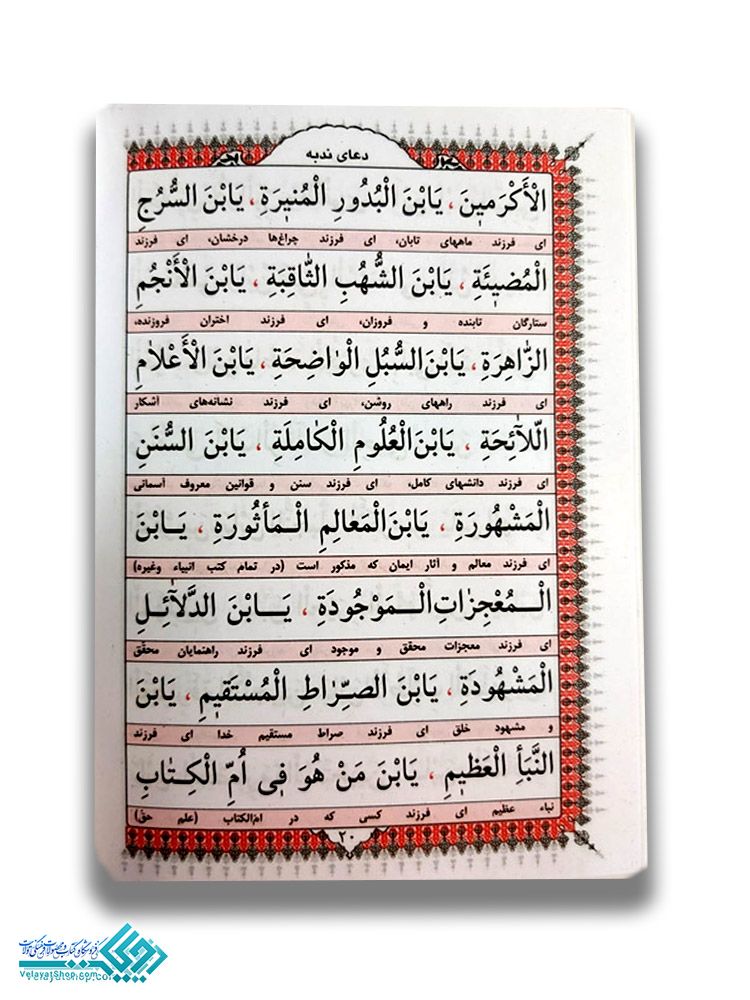 دعای ندبه
الْأَكْرَمینَ ، یَابْنَ الْبُدُورِ الْمُنیرَةِ ، یَابْنَ السُّرُجِ
ای فرزند ماههای تابان، ای فرزند چراغ‌ها درخشان، ای فرزند
الْمُضیئَةِ ، یَابْنَ الشُّهُبِ الثّاقِبَةِ ، یَابْنَ الْأَنْجُمِ
ستارگان تابنده و فروزان، ای فرزند اختران فروزنده،
الزّاهِرَةِ ، یَابْنَ السُّبُلِ الْواضِحَةِ ، یَابْنَ الْأَعْلامِ
ای فرزند راههای روشن، ای فرزند نشانه‌های آشکار
اللّآئِحَةِ ، یَابْنَ الْعُلُومِ الْکامِلَةِ ، یَابْنَ السُّنَنِ
ای فرزند دانشهای کامل، ای فرزند سنن و قوانین معروف آسمانی
الْمَشْهُورَةِ ، یَابْنَ الْمَعالِمِ الْمَأثُورَةِ ، یَابْنَ
ای فرزند معالم و آثار ایمان که مذکور است (در تمام کتب انبیاء وغیره)
الْمُعْجِزاتِ الْمَوْجُودَةِ ، یَابْنَ الدَّلآئِلِ
ای فرزند معجزات محقق و موجود ای فرزند راهنمایان محقّق
الْمَشْهُودَةِ ، یَابْنَ الصِّراطِ الْمُسْتَقیمِ ، یَابْنَ
و مشهود خلق ای فرزند صراط مستقیم خدا ای فرزند
النَّبَأِ الْعَظیمِ ، یَابْنَ مَنْ هُوَ فی اُمِّ الْکِتابِ
نباء عظیم ای فرزند کسی که در ام‌الکتاب (علم حق)
۲۰
VelayatShop.com